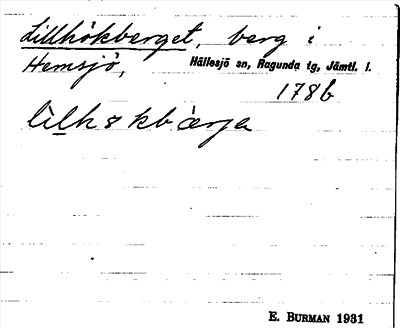 Lillhökberget, berg i
Hemsjö, Hällesjö sn, Ragunda tg, Jämtl. l.
1786
E. BURMAN 1931